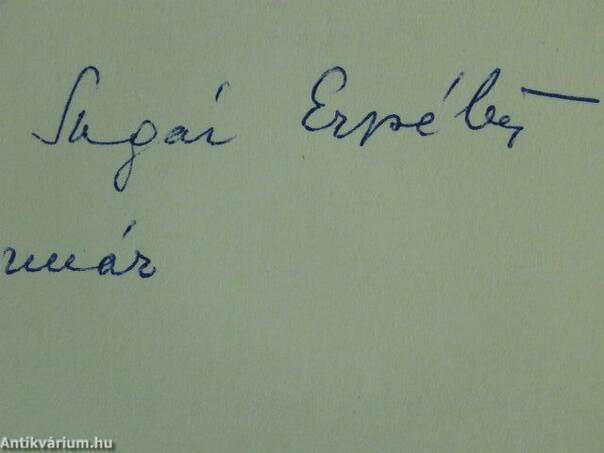 Sugár Erzsébet
nuár
Antikvárium.hu